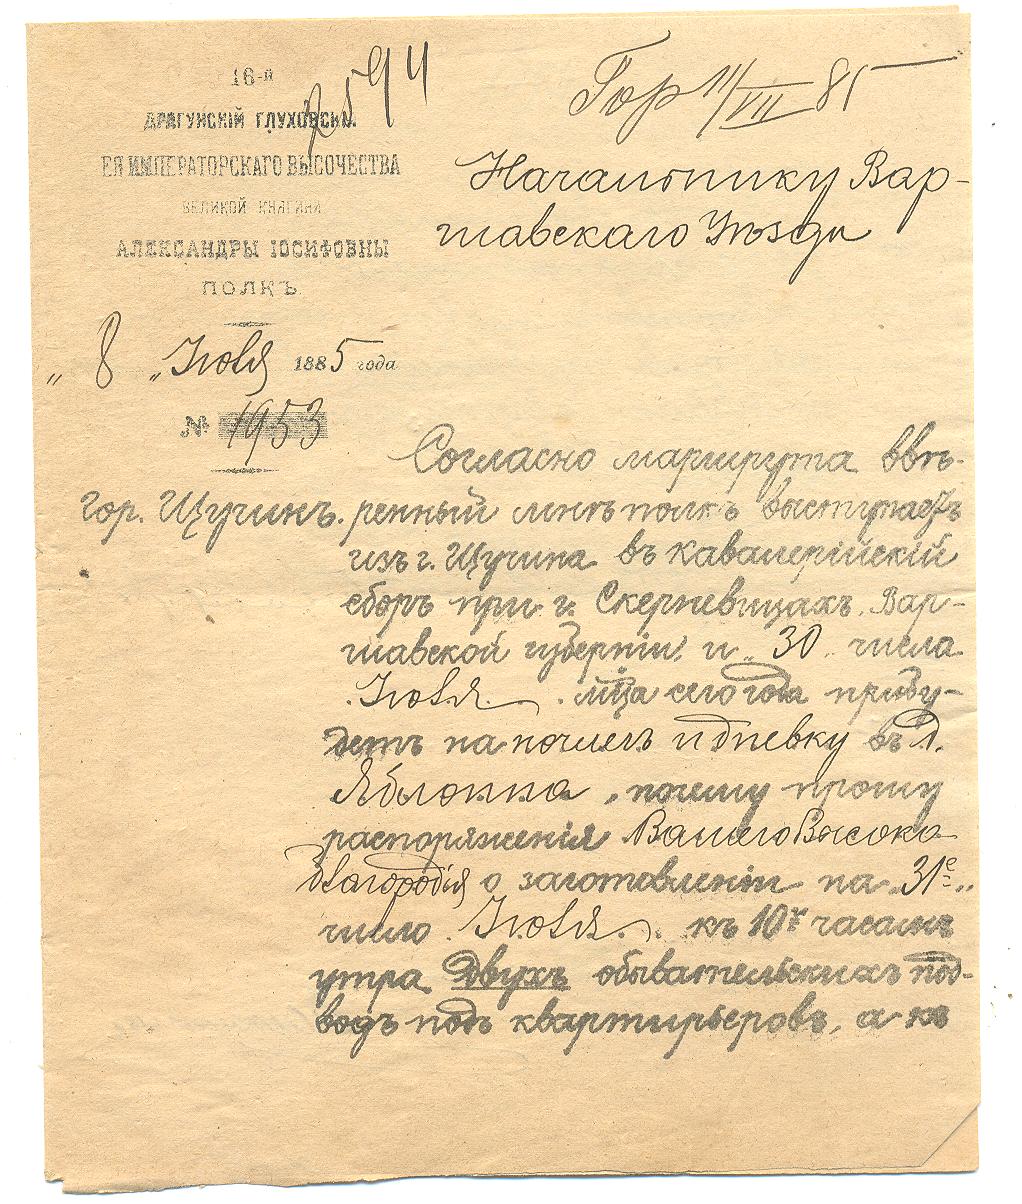 16-й
ДРАГУНСКІЙ ГЛУХОВСКІЙ
ЕЯ ИМПЕРАТОРСКАГО ВЫСОЧЕСТВА
ВЕЛИКОЙ КНЯГИНИ
АЛЕКСАНДРЫ ІОСИФОВНЫ
ПОЛКЪ
„ 8 „ Іюля 1885 года
№ 1953
Гор. Щучинъ.
594
11/VII 85
Начальнику Вар-
шавскаго Уѣзда
Согласно маршрута ввѣ-
ренный мнѣ полкъ выступаетъ
изъ г. Щучина въ кавалерійскій
сборъ при г. Скерневицахъ, Вар-
шавской губерніи, и „30„ числа
Іюля мѣсяца сего года прибу-
детъ на ночлегъ и дневку въ д.
Яблонна, почему прошу
распоряженія Вашего Высоко
благородія о заготовленіи на „31е„
число Іюля къ 10ти часамъ
утра двухъ обывательскихъ под-
водъ подъ квартирьеровъ, а къ